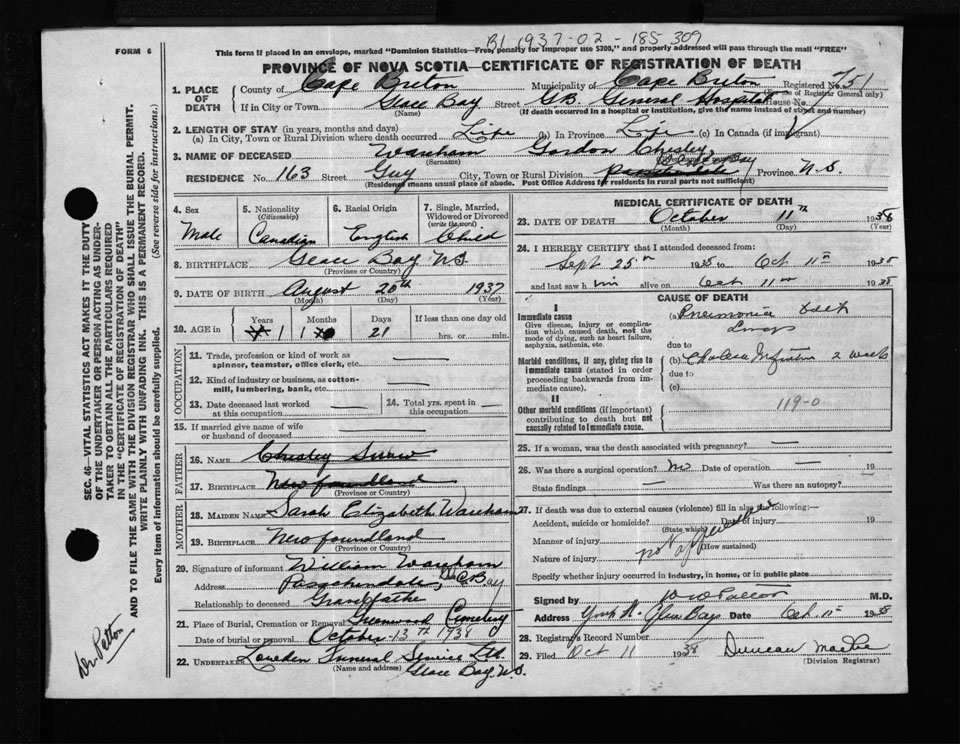 B1 1937-02-185309
FORM 6
This form if placed in an envelope, marked "Dominion Statistics—Free, penalty for improper use $300," and properly addressed will pass through the mail "FREE"
PROVINCE OF NOVA SCOTIA—CERTIFICATE OF REGISTRATION OF DEATH
1. PLACE OF DEATH
County of Cape Breton Municipality of Cape Breton Registered No. 751
(For use of Registrar General only)
If in City or Town Glace Bay Street GB General Hospital House No.
(Name) (If death occurred in a hospital or institution, give the name instead of street and number)
2. LENGTH OF STAY (in years, months and days)
(a) In City, Town or Rural Division where death occurred Life (b) In Province Life (c) In Canada (if immigrant)
3. NAME OF DECEASED Wareham Gordon Chesley
(Surname)
RESIDENCE No. 163 Street Guy City, Town or Rural Division Passchendale Bay Province N.S.
(Residence means usual place of abode. Post Office Address for residents in rural parts not sufficient)
4. Sex Male
5. Nationality (Citizenship) Canadian
6. Racial Origin English
7. Single, Married, Widowed or Divorced (write the word) Child
8. BIRTHPLACE Glace Bay N.S.
(Province or Country)
9. DATE OF BIRTH August 20th 1937
(Month) (Day) (Year)
10. AGE in Years Months Days If less than one day old
1 1 21 hrs. or min.
OCCUPATION
11. Trade, profession or kind of work as spinner, teamster, office clerk, etc. —
12. Kind of industry or business, as cotton-mill, lumbering, bank, etc. —
13. Date deceased last worked at this occupation —
14. Total yrs. spent in this occupation —
15. If married give name of wife or husband of deceased —
FATHER
16. NAME Chesley Snow
17. BIRTHPLACE Newfoundland
(Province or Country)
MOTHER
18. MAIDEN NAME Sarah Elizabeth Wareham
19. BIRTHPLACE Newfoundland
(Province or Country)
20. Signature of informant William Wareham
Address Passchendale, Bay
Relationship to deceased Grandfather
21. Place of Burial, Cremation or Removal Greenwood Cemetery
Date of burial or removal October 13th 1938
22. Undertaker Lowden Funeral Service Ltd.
(Name and address) Glace Bay N.S.
MEDICAL CERTIFICATE OF DEATH
23. DATE OF DEATH October 11th 1938
(Month) (Day) (Year)
24. I HEREBY CERTIFY that I attended deceased from:
Sept 25th 1938 to Oct 11th 1938
and last saw him alive on Oct 11th 1938
CAUSE OF DEATH
I
Immediate cause
Give disease, injury or complication which caused death, not the mode of dying, such as heart failure, asphyxia, asthenia, etc.
(a) Pneumonia both Lungs
due to
Morbid conditions, if any, giving rise to immediate cause (stated in order proceeding backwards from immediate cause).
(b) Cholera Infantum 2 weeks
due to
(c)
II
Other morbid conditions (if important) contributing to death but not causally related to immediate cause.
119-0
25. If a woman, was the death associated with pregnancy? —
26. Was there a surgical operation? No Date of operation 19
State findings — Was there an autopsy?
27. If death was due to external causes (violence) fill in also the following:—
Accident, suicide or homicide? Date of injury 19
(State which)
Manner of injury
(How sustained)
Nature of injury
Specify whether injury occurred in industry, in home, or in public place
Signed by M.D.
Address Glace Bay Date Oct 11th 1938
28. Registrar's Record Number
29. Filed Oct 11 1938 Duncan
(Division Registrar)
SEC. 46—VITAL STATISTICS ACT MAKES IT THE DUTY OF THE UNDERTAKER OR PERSON ACTING AS UNDERTAKER TO OBTAIN ALL THE PARTICULARS REQUIRED IN THE "CERTIFICATE OF REGISTRATION OF DEATH" AND TO FILE THE SAME WITH THE DIVISION REGISTRAR WHO SHALL ISSUE THE BURIAL PERMIT.
WRITE PLAINLY WITH UNFADING INK. THIS IS A PERMANENT RECORD.
Every item of information should be carefully supplied. (See reverse side for instructions.)